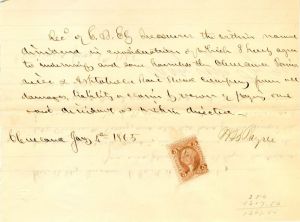 Rec'd of C. B. Ely Treasurer the within named
dividend in consideration of which I hereby agree
to indemnify and save harmless the Cleveland Paines
ville & Ashtabula Rail Road Company from all
damages, liability or claim by reason of paying over
said dividend as within directed.
Cleveland Jany 4th 1865
H B Payne